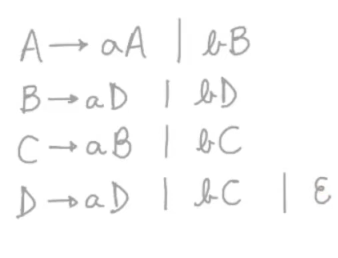 A → aA | bB
B → aD | bD
C → aB | bC
D → aD | bC | ε